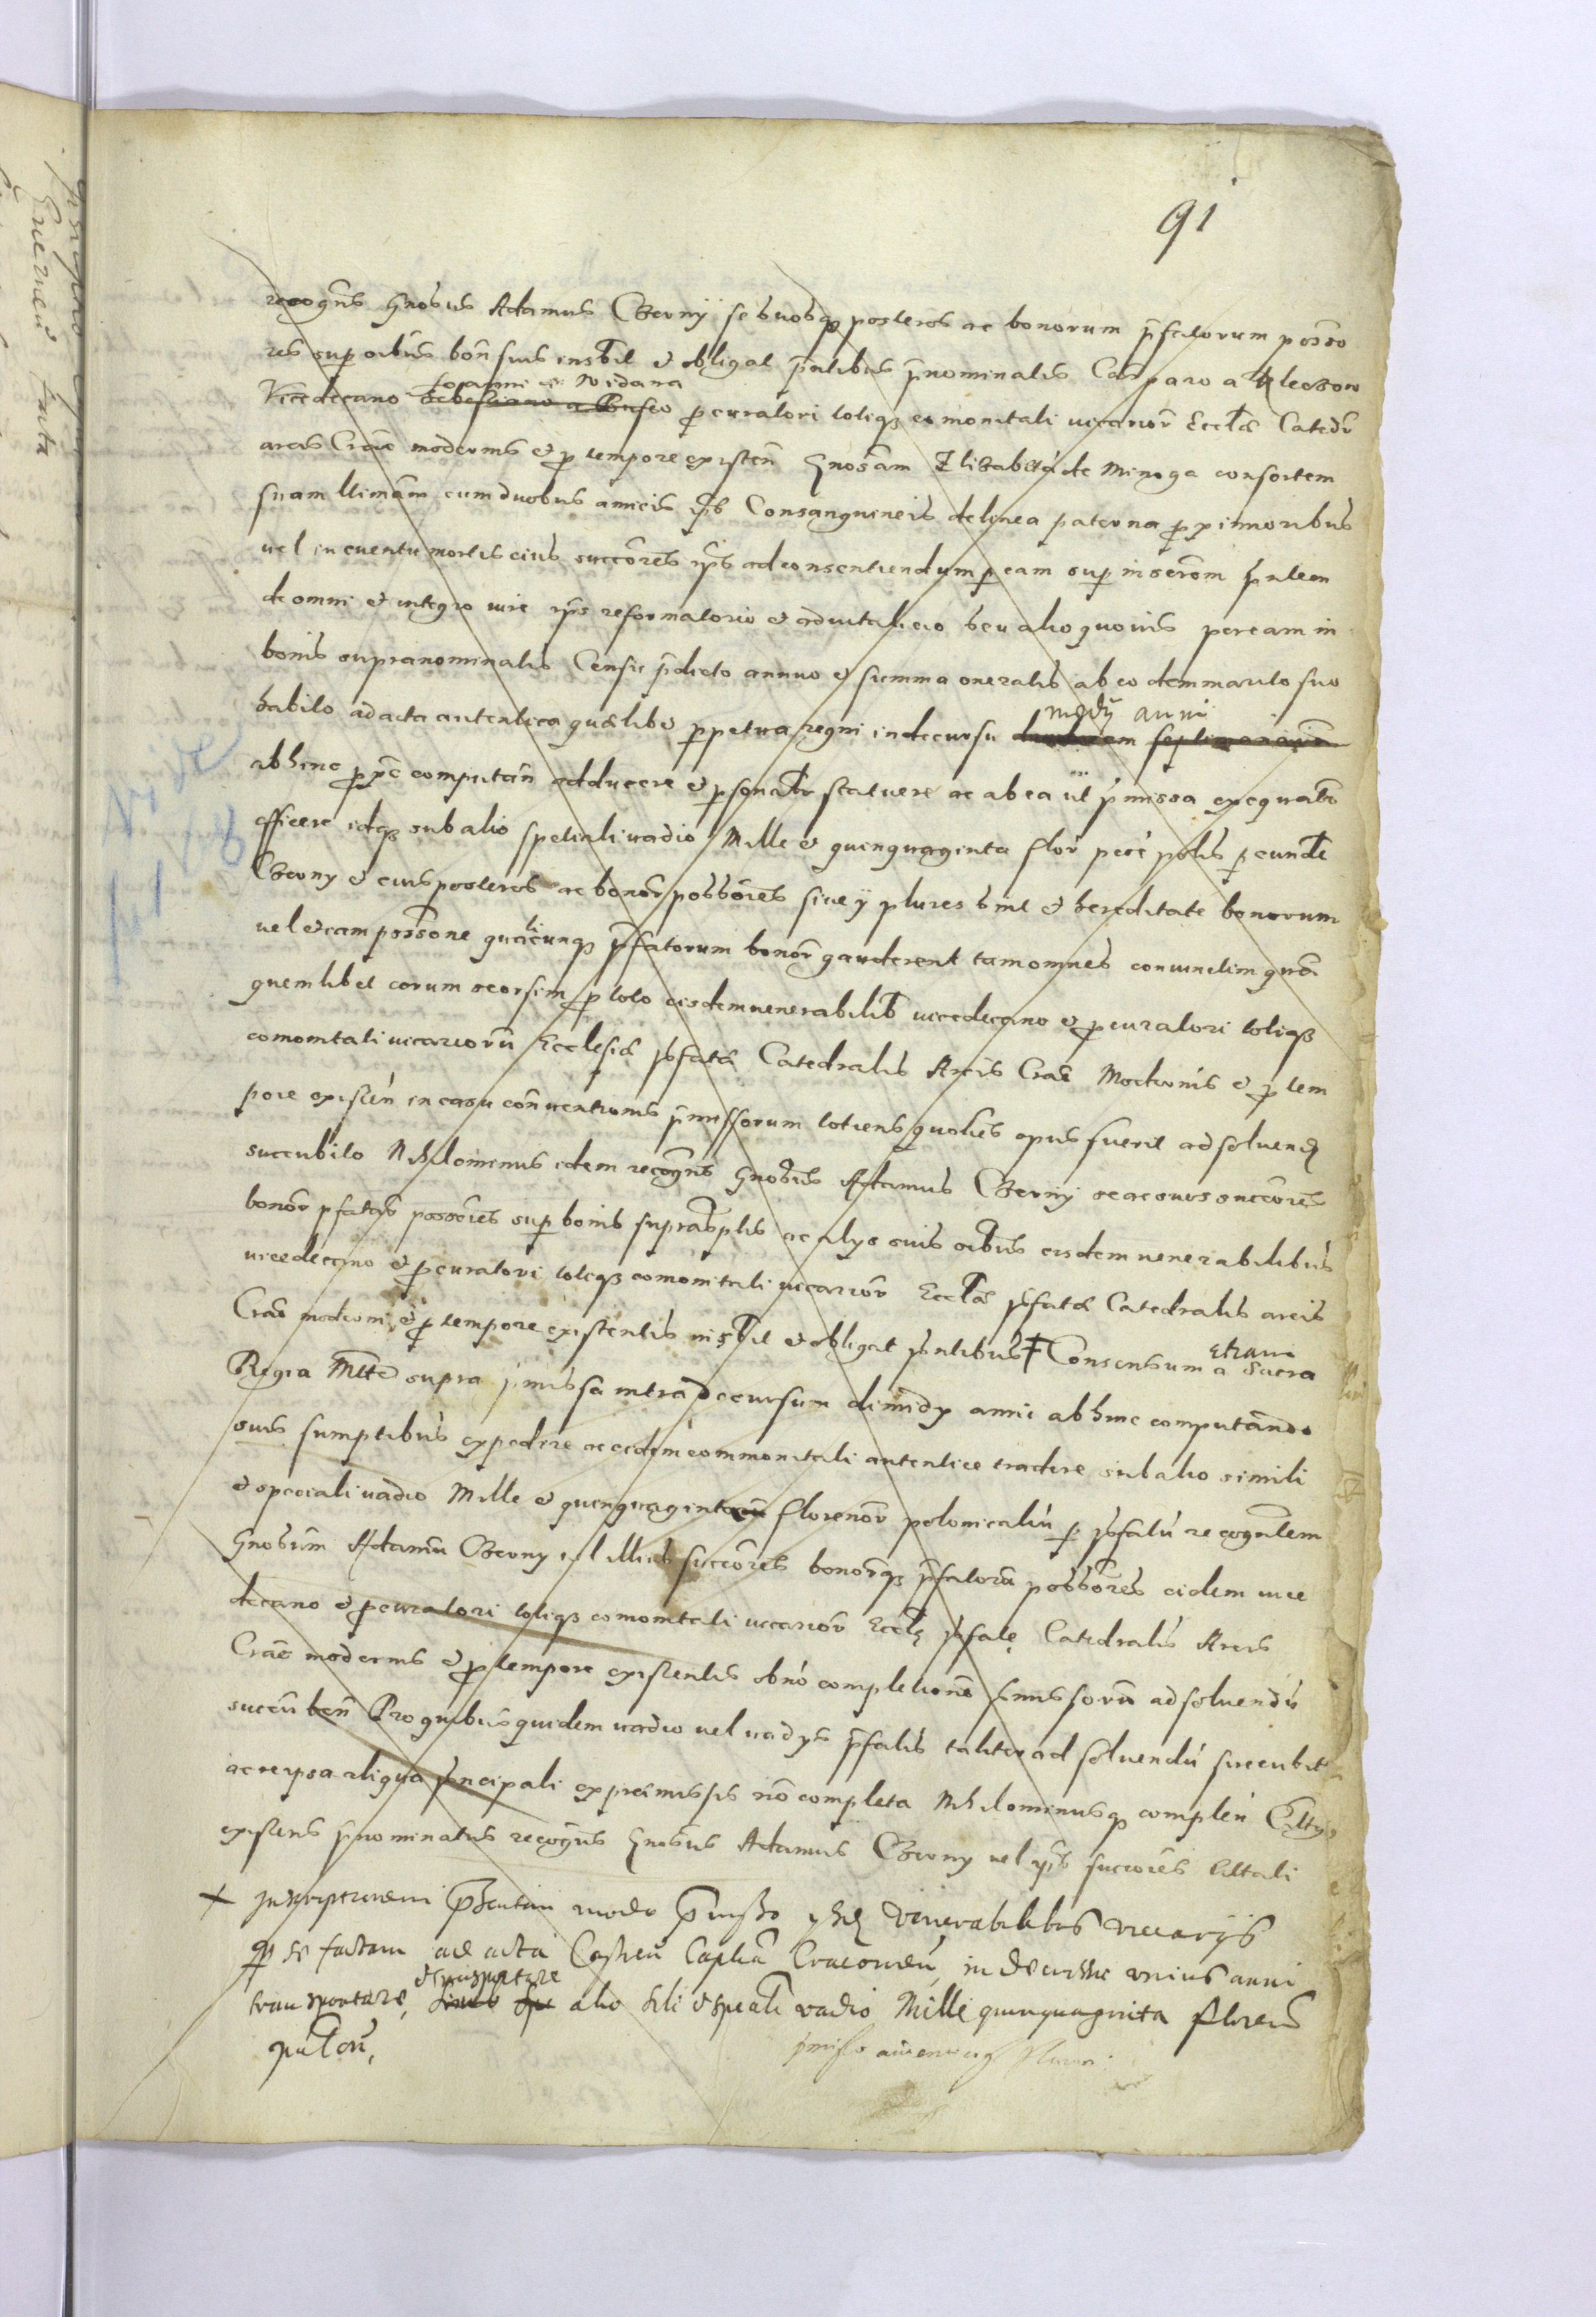 91
recogns Gnosus Adamus Czerny se suosqz posteros ac bonorum pfatorum posso
res sup oibus bon suis inscbit et obligat pntibus pnominatis Casparo a Kleczow
Vicedecano Joanni a Widawa pcuratori totiqz comonitati vicarior Eccliae Catedr
arcis Crac modernis et p tempore existen Gnosam Elisabeta de Minoga consortem
suam llimam cum duobus amicis ipsius Consanguineis de linea paterna pximioribus
vel in eventu mortis eius succores ipsius ad consentiendum p eam sup inscrom pntem
de omni et integro iure ipsius reformatorio et advitalicio seu alio quovis per eam in
bonis supranominatis Censu pdicto annuo et summa oneratis ab eodem marito suo
habito ad acta autentica quaelibet perpetua regni in decursu medy anni
abhinc pxe computan adducere et psonalr statuere ac ab ea ut pmissa exequatr
efficere idqz sub alio speciali vadio Mille et quinquaginta flor pece polis p eundem
Czerny et eius posteros ac bonor possores sive y plures sint et hereditate bonorum
vel etiam possone qualicunqz pfatorum bonor gauderent tam omnes coniunctim quam
quemlibet eorum seorsim p toto eisdem venerabilib vicedecano et pcuratori totiqz
comonitati vicariorum Ecclesiae psfatae Catedralis Arcis Crac Modernis et p tem
pore existen in casu conventionis pmissorum totiens quoties opus fuerit ad solvend
succubito Nihilominus idem recogns Gnosus Adamus Czerny se ac suos succores
bonor pfatos possores sup bonis suprascptis ac alys suis oibus eisdem venerabilibus
vicedecano et pcuratori totiqz comonitati vicarior Eccliae psfatae Catedralis arcis
Crac moderni et p tempore existentis inscbit et obligat pntibus ‡ Consensum etiam a Sacra
Regia Mtte supra pmissa intra decursum dimidy anni abhinc computando
suis sumptibus expedire ac eidem commonitati autentice tradere sub alio simili
et speciali vadio Mille et quinquaginta florenor polonicaliu p psfatu recognitem
Gnosum Adamu Czerny vel illius succores bonorqz pfatoru possores eidem vice
decano et pcuratori totiqz comonitati vicarior Eccle psfate Catedralis Arcis
Crac modernis et p tempore existentis ob no completione pmissoru ad solvendu
succuben Pro quibus quidem vadio vel vadys pfatis taliter ad solvendu succubit
ac re ipsa aliqua principali ex premissis no completa Nihilominusqz complen Citty
existens pnominatus recogns Gnosus Adamus Czerny vel ipsius succores Cittati
+ Inscriptionem psentem modo pmisso venerabilibus vicarijs
p se factam ad acta Castren Captia Cracovien in decursu unius anni
transportare, alio sili et speciali vadio Mille quinquaginta floren